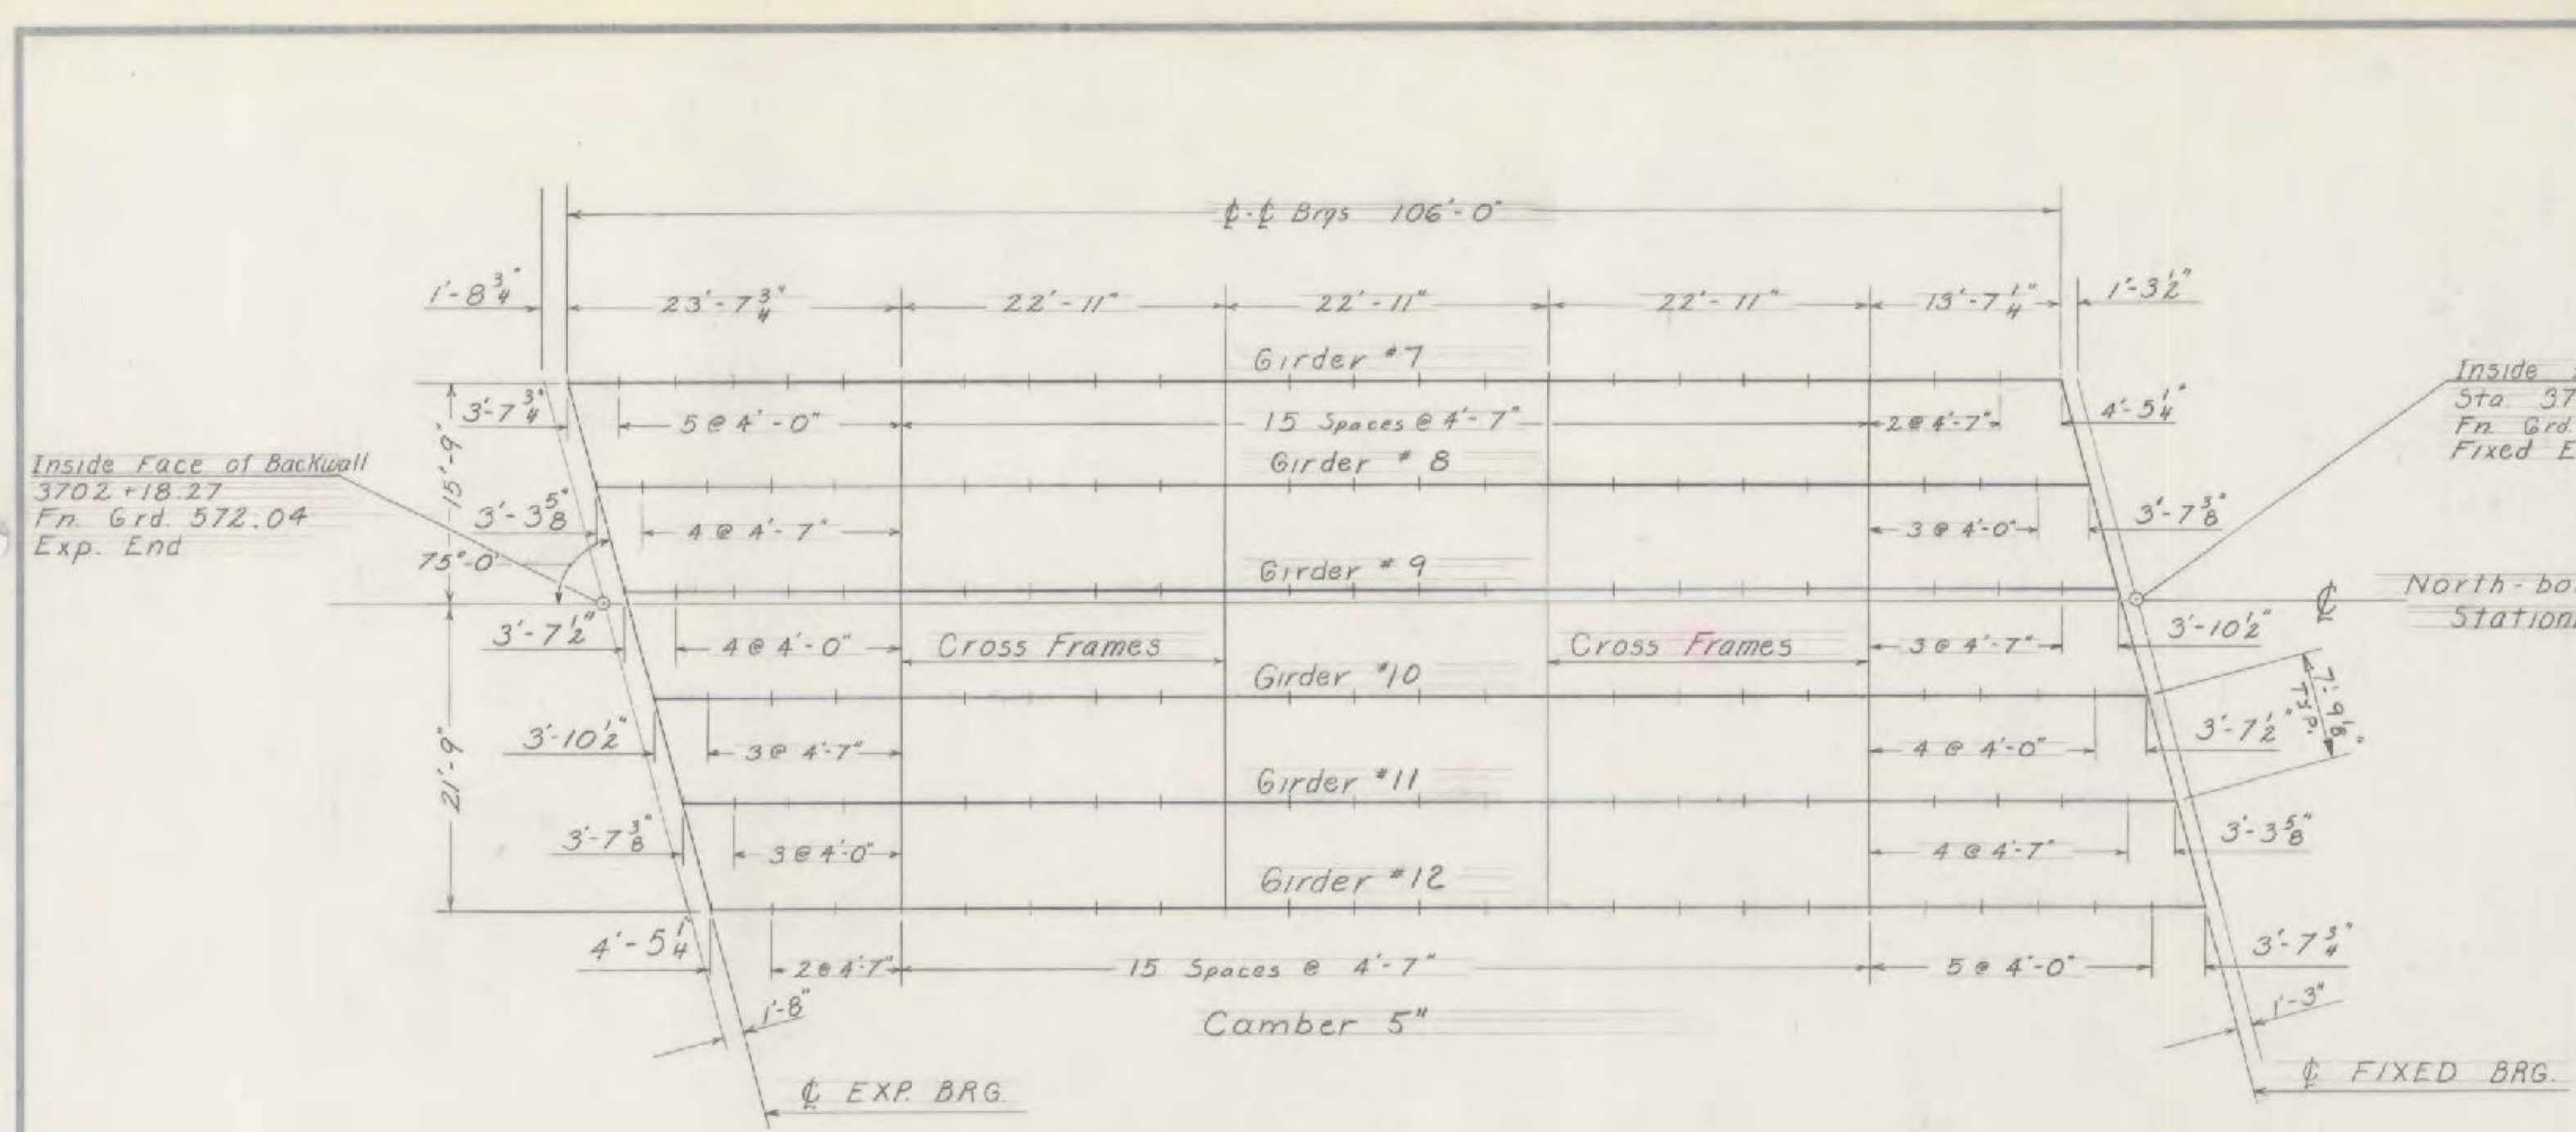 ℄-℄ Brgs 106'-0"
1'-8 3/4"
23'-7 3/4"
22'-11"
22'-11"
22'-11"
13'-7 1/4"
1'-3 1/2"
Girder #7
3'-7 3/4"
5 @ 4'-0"
15 Spaces @ 4'-7"
2 @ 4'-7"
4'-5 1/4"
Inside
Sta. 37
Fn. Grd.
Fixed E
15'-9"
Girder # 8
Inside Face of Backwall
3702+18.27
Fn. Grd. 572.04
Exp. End
3'-3 5/8"
4 @ 4'-7"
3 @ 4'-0"
3'-7 3/8"
75°-0'
Girder # 9
℄
North-bo
Station
3'-7 1/2"
4 @ 4'-0"
Cross Frames
Cross Frames
3 @ 4'-7"
3'-10 1/2"
Girder #10
7'-9 1/8"
Typ.
21'-9"
3'-10 1/2"
3 @ 4'-7"
4 @ 4'-0"
3'-7 1/2"
Girder #11
3'-7 3/8"
3 @ 4'-0"
4 @ 4'-7"
3'-3 5/8"
Girder #12
4'-5 1/4"
2 @ 4'-7"
15 Spaces @ 4'-7"
5 @ 4'-0"
3'-7 3/4"
1'-8"
Camber 5"
1'-3"
℄ EXP. BRG.
℄ FIXED BRG.